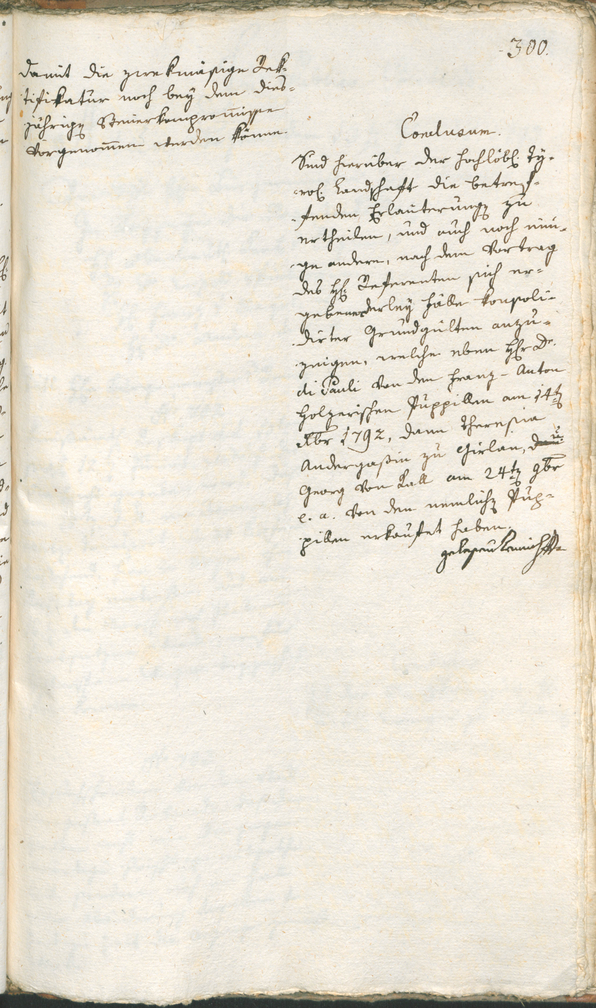 300.
damit die zwekmäsige Rek-
tifikatur noch bey dem dies-
jährigen Steuerkompromisse
vorgenommen werden könne.
Conclusum.
Sind hierüber der hochlöbl. Ty-
rol. Landschaft die betref-
fenden Erläuterungen zu
ertheilen, und auch noch eini-
ge andere, nach dem Vortrag
des H. Referenten sich er-
gebene derley Fälle konsoli-
dirter Grundgülten anzu-
zeigen, welche eben Hr. Dr.
di Pauli von den Franz-Anton
Holzerischen Puppillen am 14t.
Xbr 1792, dann Theresia
Andergassin zu Girlan,
Georg von Call am 24t. 9br
e. a. von den nemlichen Pup-
pillen erkaufet haben.